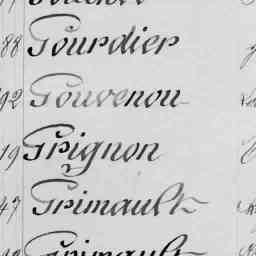 88 Gourdier
92 Gouvenou
19 Grignon
47 Grimault
Grimault